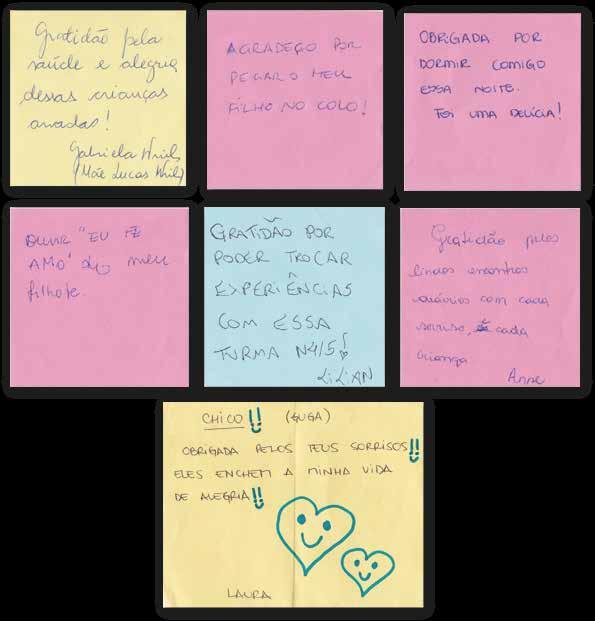 Gratidão pela
saúde e alegria
dessas crianças
amadas!
Gabriela
(Mãe Lucas
AGRADEÇO POR
PEGAR O MEU
FILHO NO COLO!
OBRIGADA POR
DORMIR COMIGO
ESSA NOITE.
FOI UMA DELÍCIA!
OUVIR "EU TE
AMO" DO meu
filhote.
GRATIDÃO POR
PODER TROCAR
EXPERIÊNCIAS
COM ESSA
TURMA N4/5!
LILIAN
Gratidão pelos
lindos encontros
diários com cada
sorriso, cada
criança
Anne
CHICO!! (GUGA)
OBRIGADA PELOS TEUS SORRISOS!!
ELES ENCHEM A MINHA VIDA
DE ALEGRIA!!
LAURA